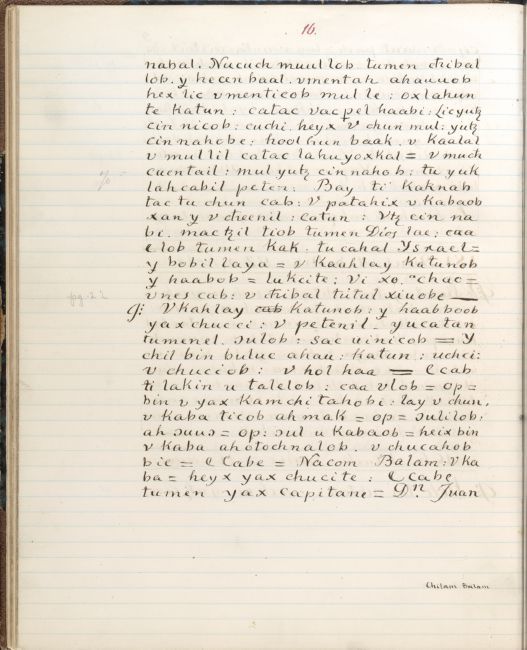 16.
nabal. Nucuch muullob tumen dzibal
lob. y hecen baal. vmentah ahauuob
hex lic vmenticob mulle: oxlahun
te Katun: catac vacpel haabi: licyutz
cinnicob: cuchi. heyx v chun mul: yutz
cinnahobe: hoolhun baak. v Kaalal
v mullil catac lahuyoxkal = v much
cuentail: mul yutz cinnahob: tu yuk
lahcabil peten: Bay ti Kaknab
tac tu chun cab: v patahix v Kabaob
xan y v cheenil: catun: Vtz cin na
bi. mactzil tiob tumen Dios lae: caa
elob tumen Kak: tu cahal Ysrael =
y bobil laya = v Kaahlay Katunob
y haabob = lukcite; Vi xo. "chac =
vnes cab: v dzibal tutul xiuobe
% 
pg. 22
q: Vkahlay cab Katunob: y haabboob
yax chucci: v petenil. yucatan
tumenel. Julob: sac uinicob = Y
chil bin buluc ahau: Katun: uchci:
v chuciob: v hol haa = Ccab
ti lakin u talelob: caa vlob = op =
bin v yax Kamchitahobi: lay v chun,
v Kaba ticob ah mak = op = Julilob:
ah ɔuuɔ = op: ɔul u Kabaob = heix bin
v Kaba ahotochnalob. v chucahob
bie = C Cabe = Nacom Balam: vKa
ba = heyx yax chucite: C Cabe
tumen yax capitane = Dn. Juan
Chilam Balam